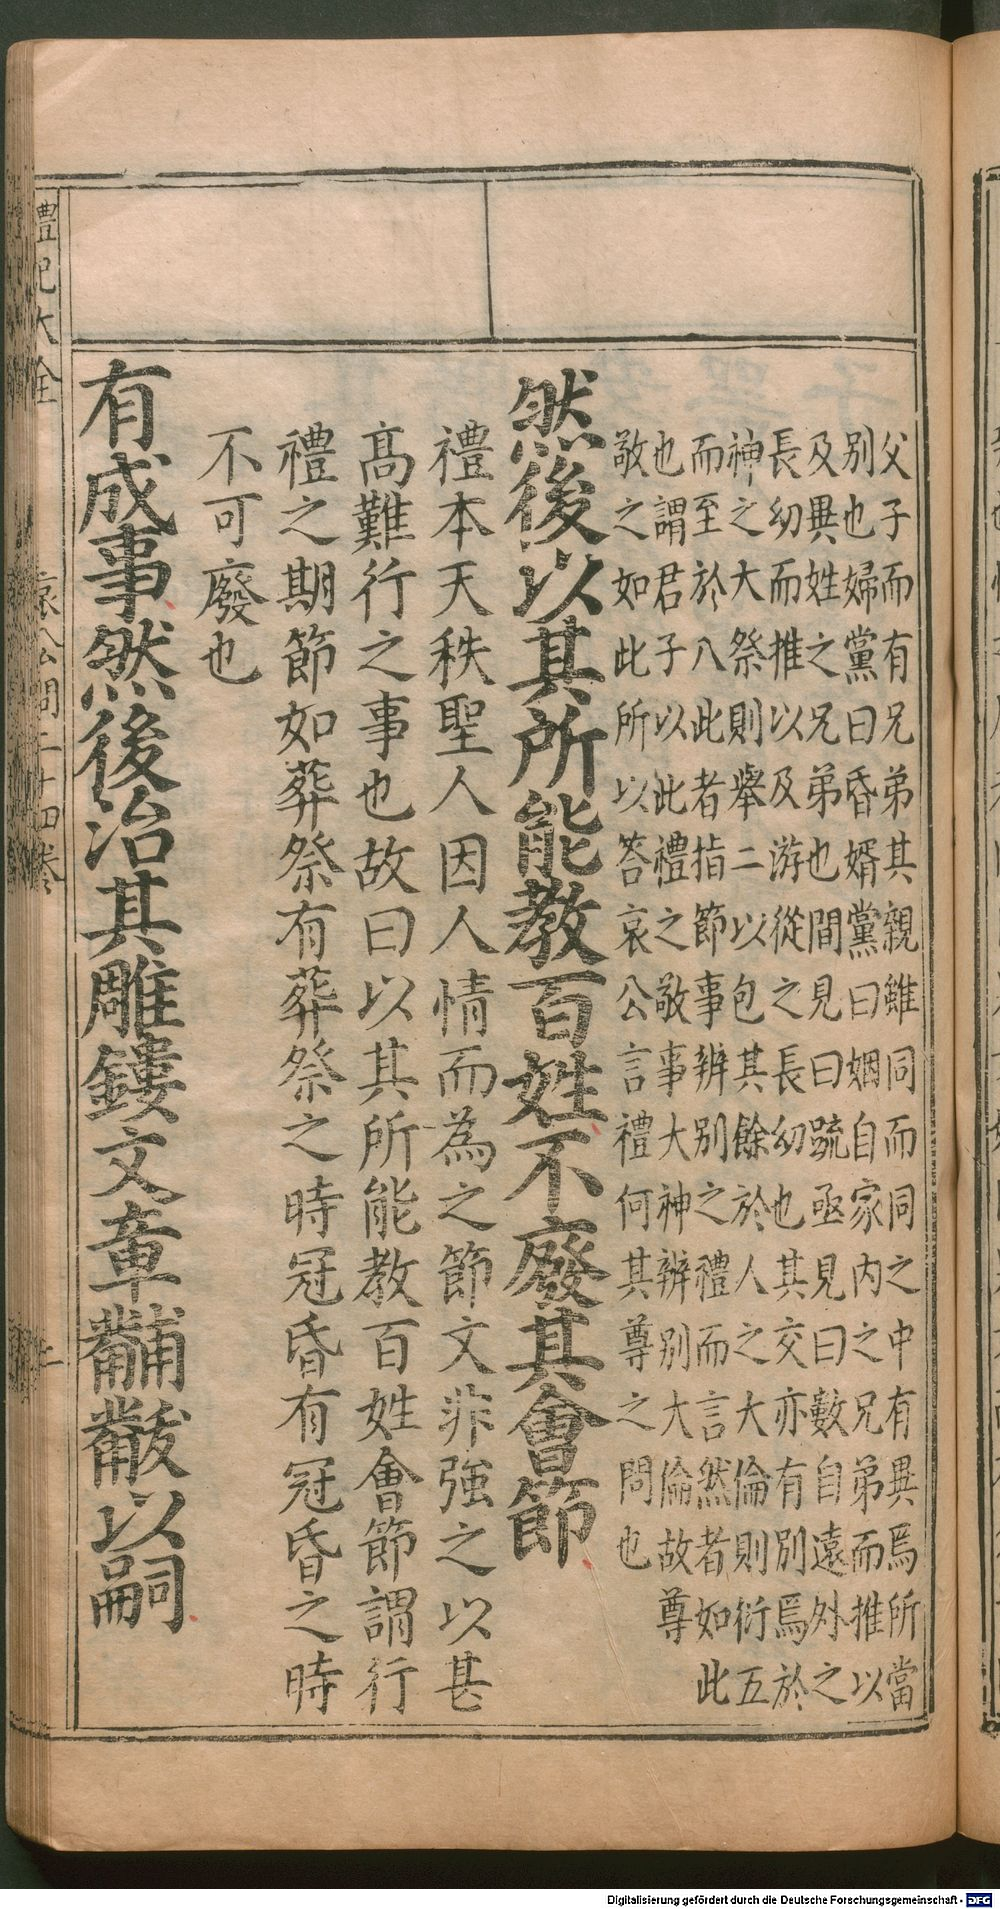 父子而有兄弟其親雖同而同之中有異焉所當
別也婦黨曰昏婿黨曰姻自家內之兄弟而推以
及異姓之兄弟也間見曰䟽亟見曰數自遠外之
長幼而推以及游從之長幼也其交亦有別焉於
神之大祭則舉二以包其餘於人之大倫則衍五
而至於八此者指節事辨別之禮而言然者如此
也謂君子以此禮之敬事大神辨別大倫故尊
敬之如此所以答哀公言禮何其尊之問也
然後以其所能教百姓不廢其會節
禮本天秩聖人因人情而為之節文非強之以甚
高難行之事也故曰以其所能教百姓會節謂行
禮之期節如葬祭有葬祭之時冠昏有冠昏之時
不可廢也
有成事然後治其雕鏤文章黼黻以嗣
禮記大全 哀公問二十四卷
Digitalisierung gefördert durch die Deutsche Forschungsgemeinschaft - DFG